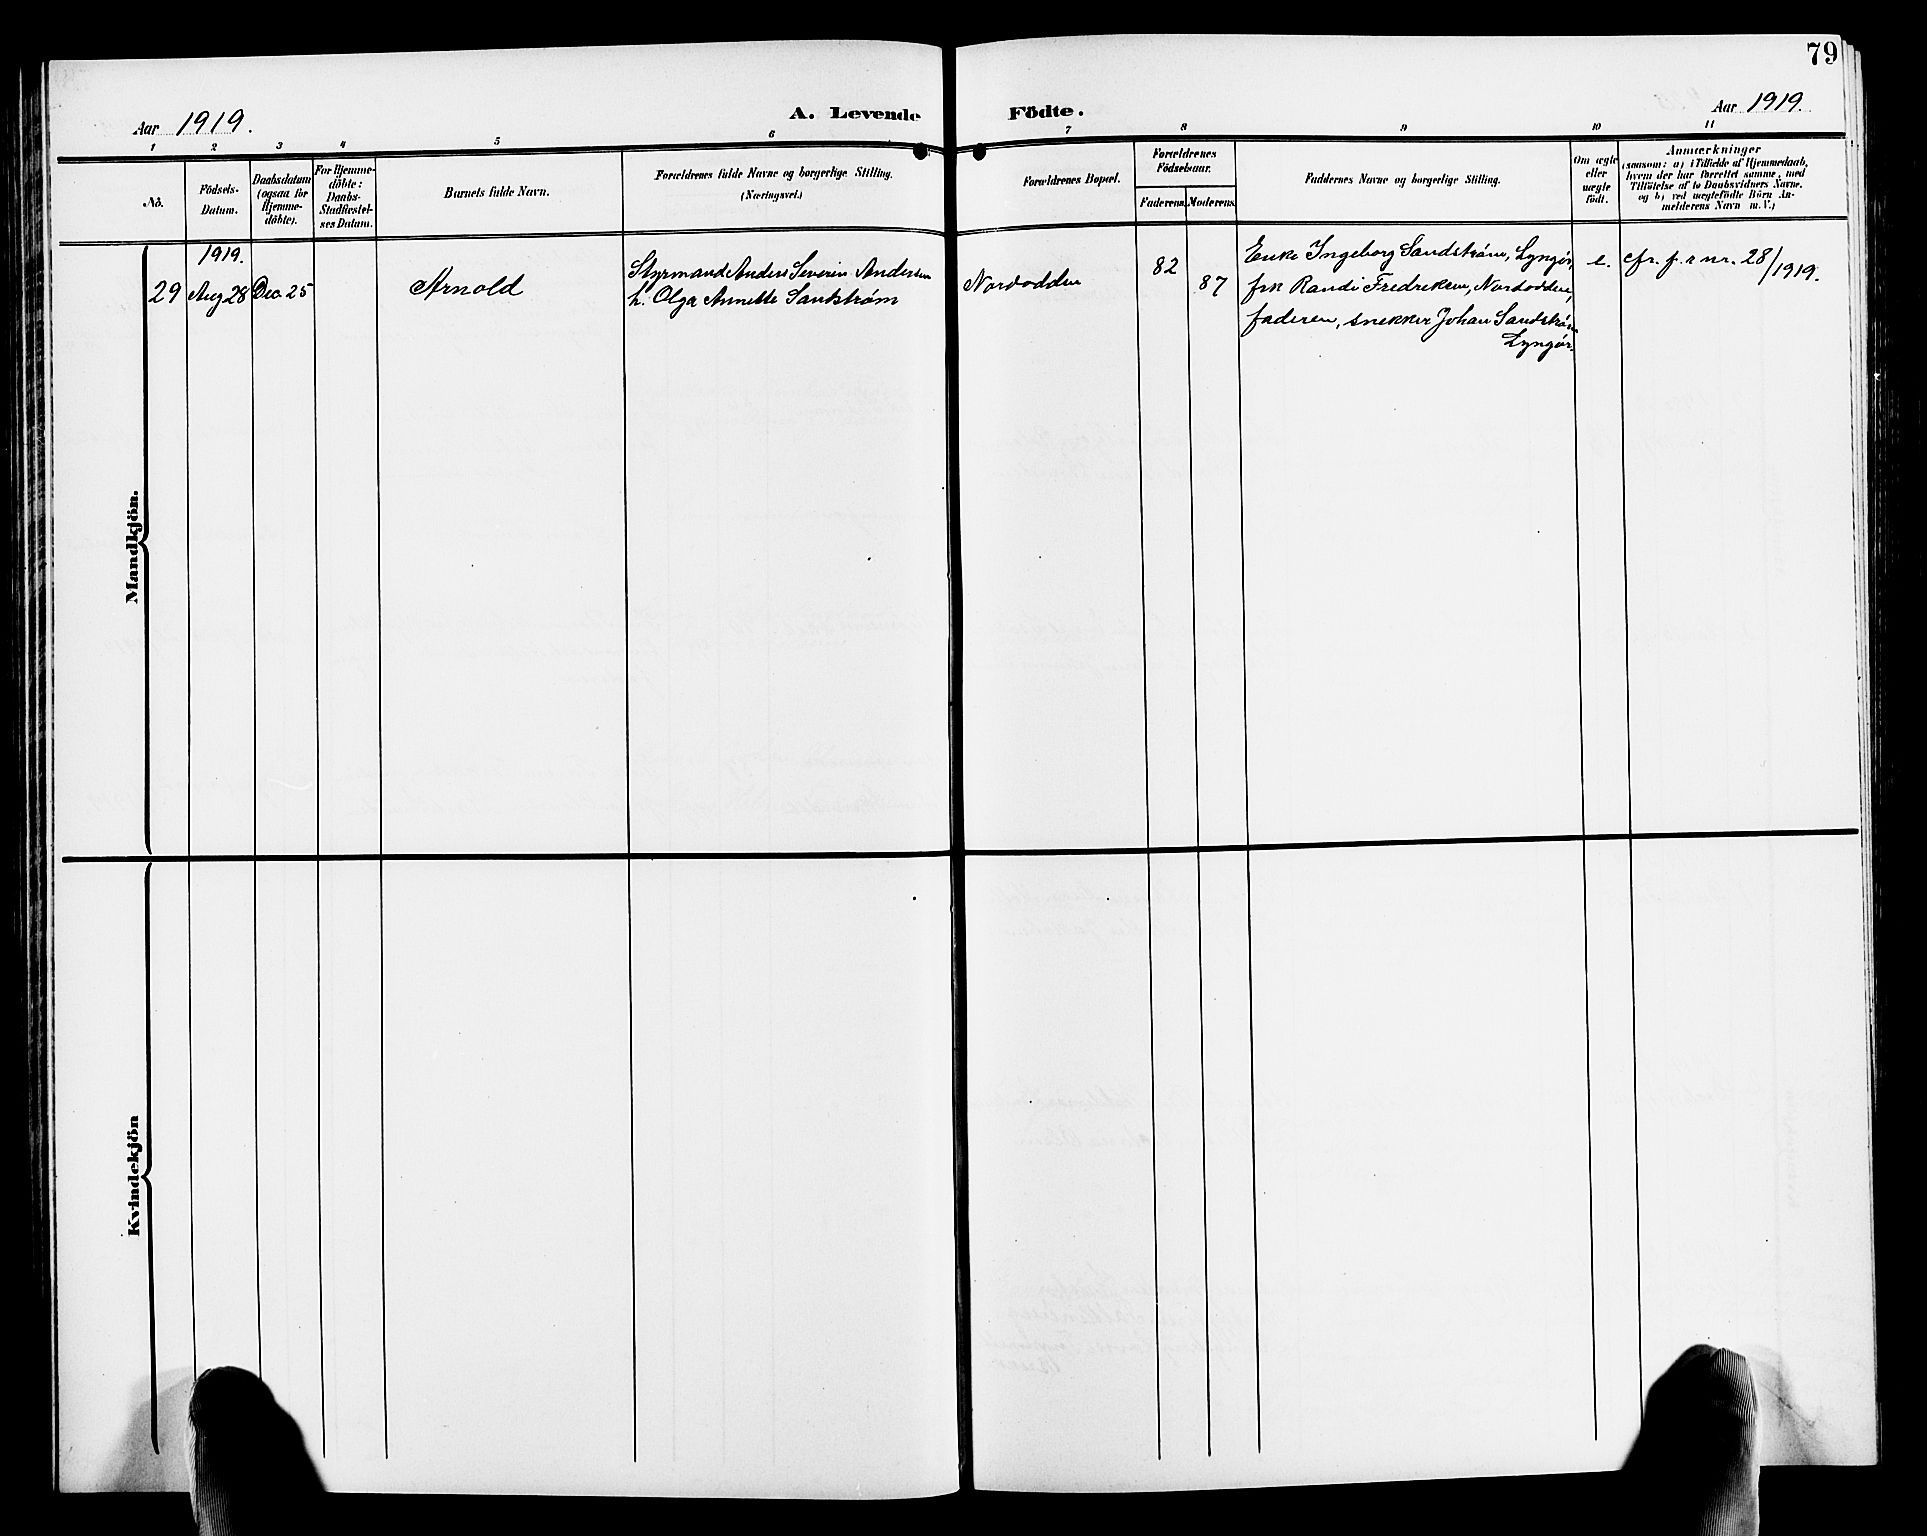 79
Aar 1919.
A. Levende Födte.
Aar 1919.
1 2 3 4 5 6 7 8 9 10 11
No.
Födsels-
Datum.
Daabsdatum
(ogsaa for
Hjemme-
döbte).
For Hjemme-
döbte:
Daabs-
Stadfæstel-
ses Datum.
Barnets fulde Navn.
Forældrenes fulde Navne og borgerlige Stilling.
(Næringsvei.)
Forældrenes Bopæl.
Forældrenes
Födselsaar.
Faderens. Moderens.
Faddernes Navne og borgerlige Stilling.
Om ægte
eller
uægte
födt.
Anmærkninger
(saasom: a) i Tilfælde af Hjemmedaab,
hvem der har forrettet samme, med
Tilföielse af to Daabsvidners Navne.
og b) ved uægtefödte Börn An-
melderens Navn m. V.)
Mandkjön.
1919.
29 Aug 28 Dec. 25
Arnold
Styrmand Anders Severin Andersen
h. Olga Annette Sandstrøm
Nordodden
82
87
Enke Ingeborg Sandstrøm, Lyngør,
frk Randi Fredriksen, Nordodden,
faderen, snekker Johan Sandstrøm
Lyngør.
e.
cfr. f. r nr. 28/1919.
Kvindekjön